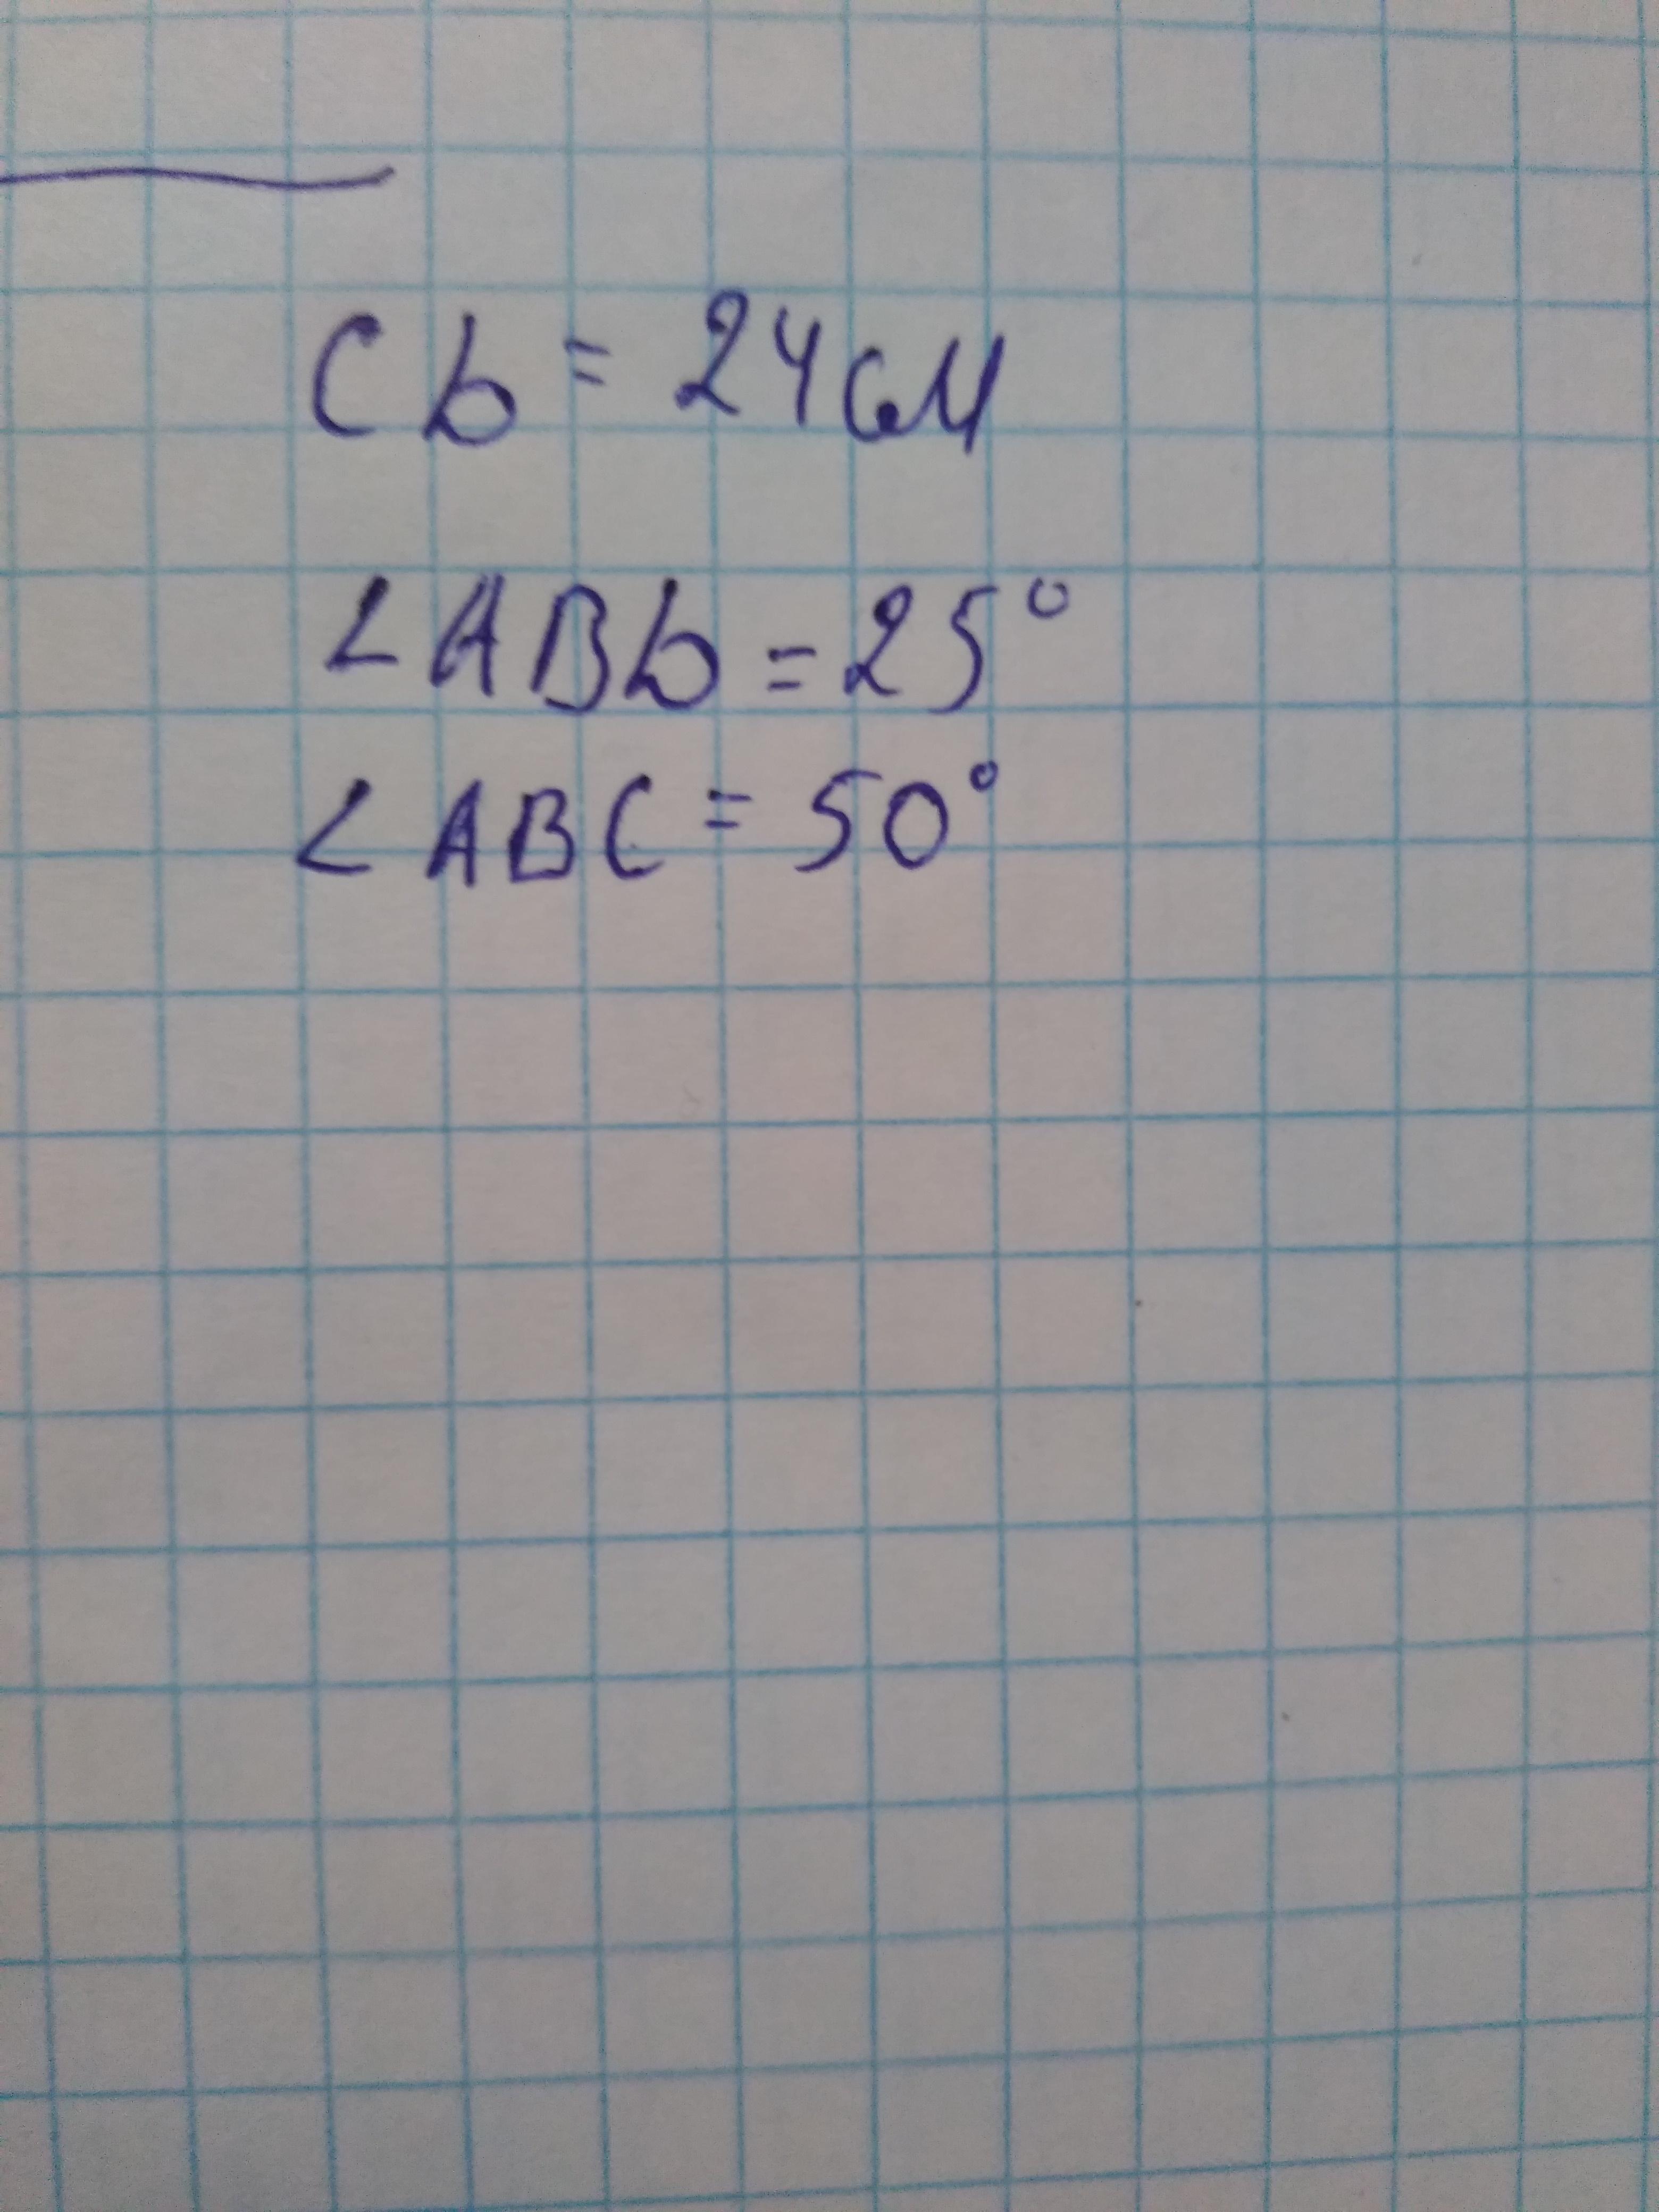 Cb = 24 см
∠ABb = 25°
∠ABC = 50°